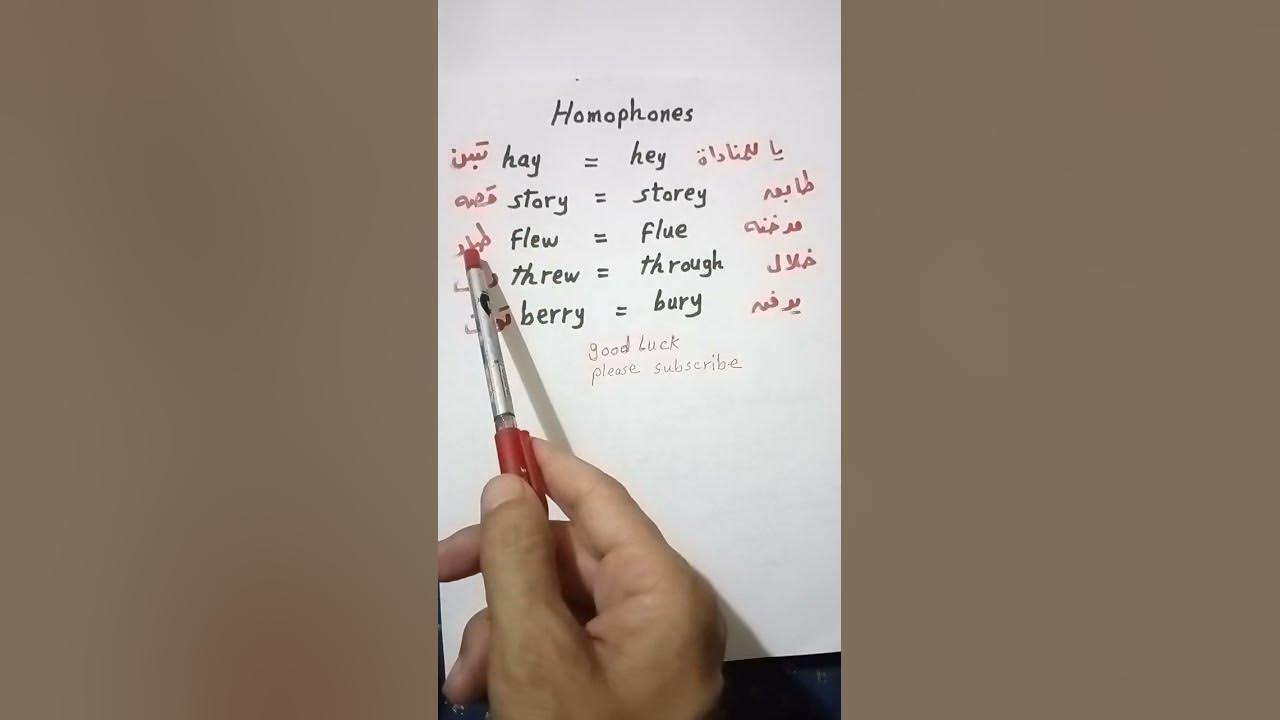 Homophones
تبن hay = hey يا للمناداة
قصه story = storey طابعه
طار flew = flue مدخنه
threw = through خلال
berry = bury يدفنه
good luck
please subscribe